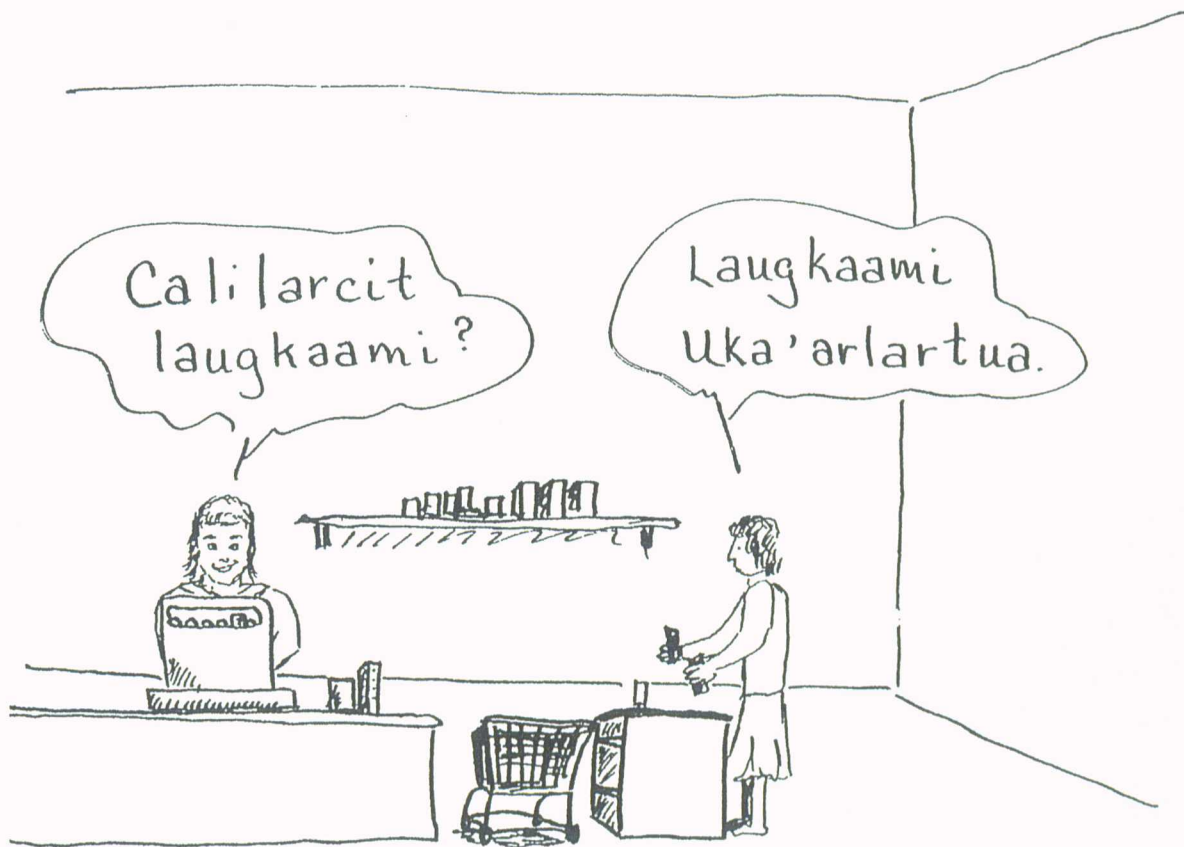 Calilarcit
laugkaami?
Laugkaami
uka'arlartua.